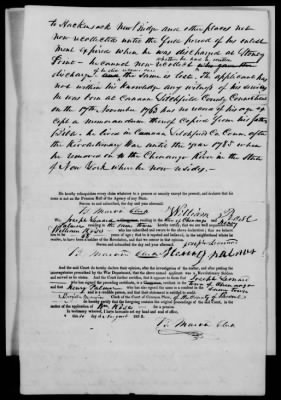 to Hackensack New Bridge and other places not
now recollected until the first period of his enlist-
ment expired when he was discharged at Stoney
Point — he cannot now recollect
whether he had a written
discharge the same is lost. The applicant has
not within his knowledge any writings of service
he was born at Canaan Litchfield County Connecticut
on the 7th November 1763 has no record of his age ex-
cept a memorandum thereof copied from his father's
Bible. he lived in Canaan Litchfield Co Conn. after
the Revolutionary War until the year 1785 when
he removed on to the Chenango River in the State
of New York where he now resides.
He hereby relinquishes every claim whatever to a pension or annuity except the present, and declares that his name
is not on the Pension Roll of the Agency of any State.
Sworn to and subscribed, the day and year aforesaid.
William Rose
B Marvin Clerk
We, Joseph Leonard
residing in the same town, hereby certify, that we are well acquainted with
William Rose who has subscribed and sworn to the above declaration; that we believe
him to be years of age; that he is reputed and believed, in the neighborhood where he
resides, to have been a soldier of the Revolution, and that we concur in that opinion.
Sworn to and subscribed the day and year aforesaid.
Joseph Leonard
B Marvin Clerk
And the said Court do hereby declare their opinion, after the investigation of the matter, and after putting the
interrogatories prescribed by the War Department, that the above named applicant was a Revolutionary Soldier
and served as he states. And the Court further certifies, that it appears to them that Joseph Leonard
who has signed the preceding certificate, is a resident in the town of Chenango
and that Henry Palmer who has also signed the same is a resident in the same town
and is a credible person, and that their statement is entitled to credit.
I, Clerk of the Court of Common Pleas, of the County of Broome
do hereby certify that the foregoing contains the original proceedings of the said Court, in the matter of the
application of Wm Rose for a pension.
In testimony whereof, I have hereunto set my hand and seal of office,
this day of August 1832.
B Marvin Clerk